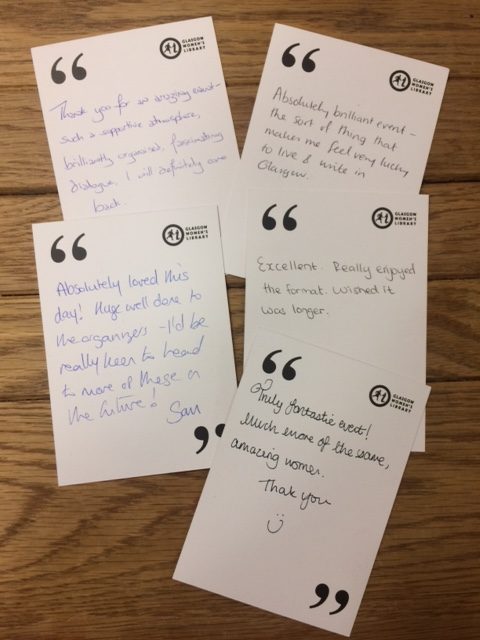 “
GLASGOW
WOMEN'S
LIBRARY
Thank you for an amazing event -
such a supportive atmosphere,
brilliantly organised, fascinating
dialogue. I will definitely come
back.
“
GLASGOW
WOMEN'S
LIBRARY
Absolutely brilliant event -
the sort of thing that
makes me feel very lucky
to live & write in
Glasgow.
“
GLASGOW
WOMEN'S
LIBRARY
Absolutely loved this
day! Huge well done to
the organizers - I'd be
really keen to head
to more of these in
the future!
”
“
GLASGOW
WOMEN'S
LIBRARY
Excellent. Really enjoyed
the format. Wished it
was longer.
“
GLASGOW
WOMEN'S
LIBRARY
Truly fantastic event!
Much more of the same,
amazing women.
Thank you
”